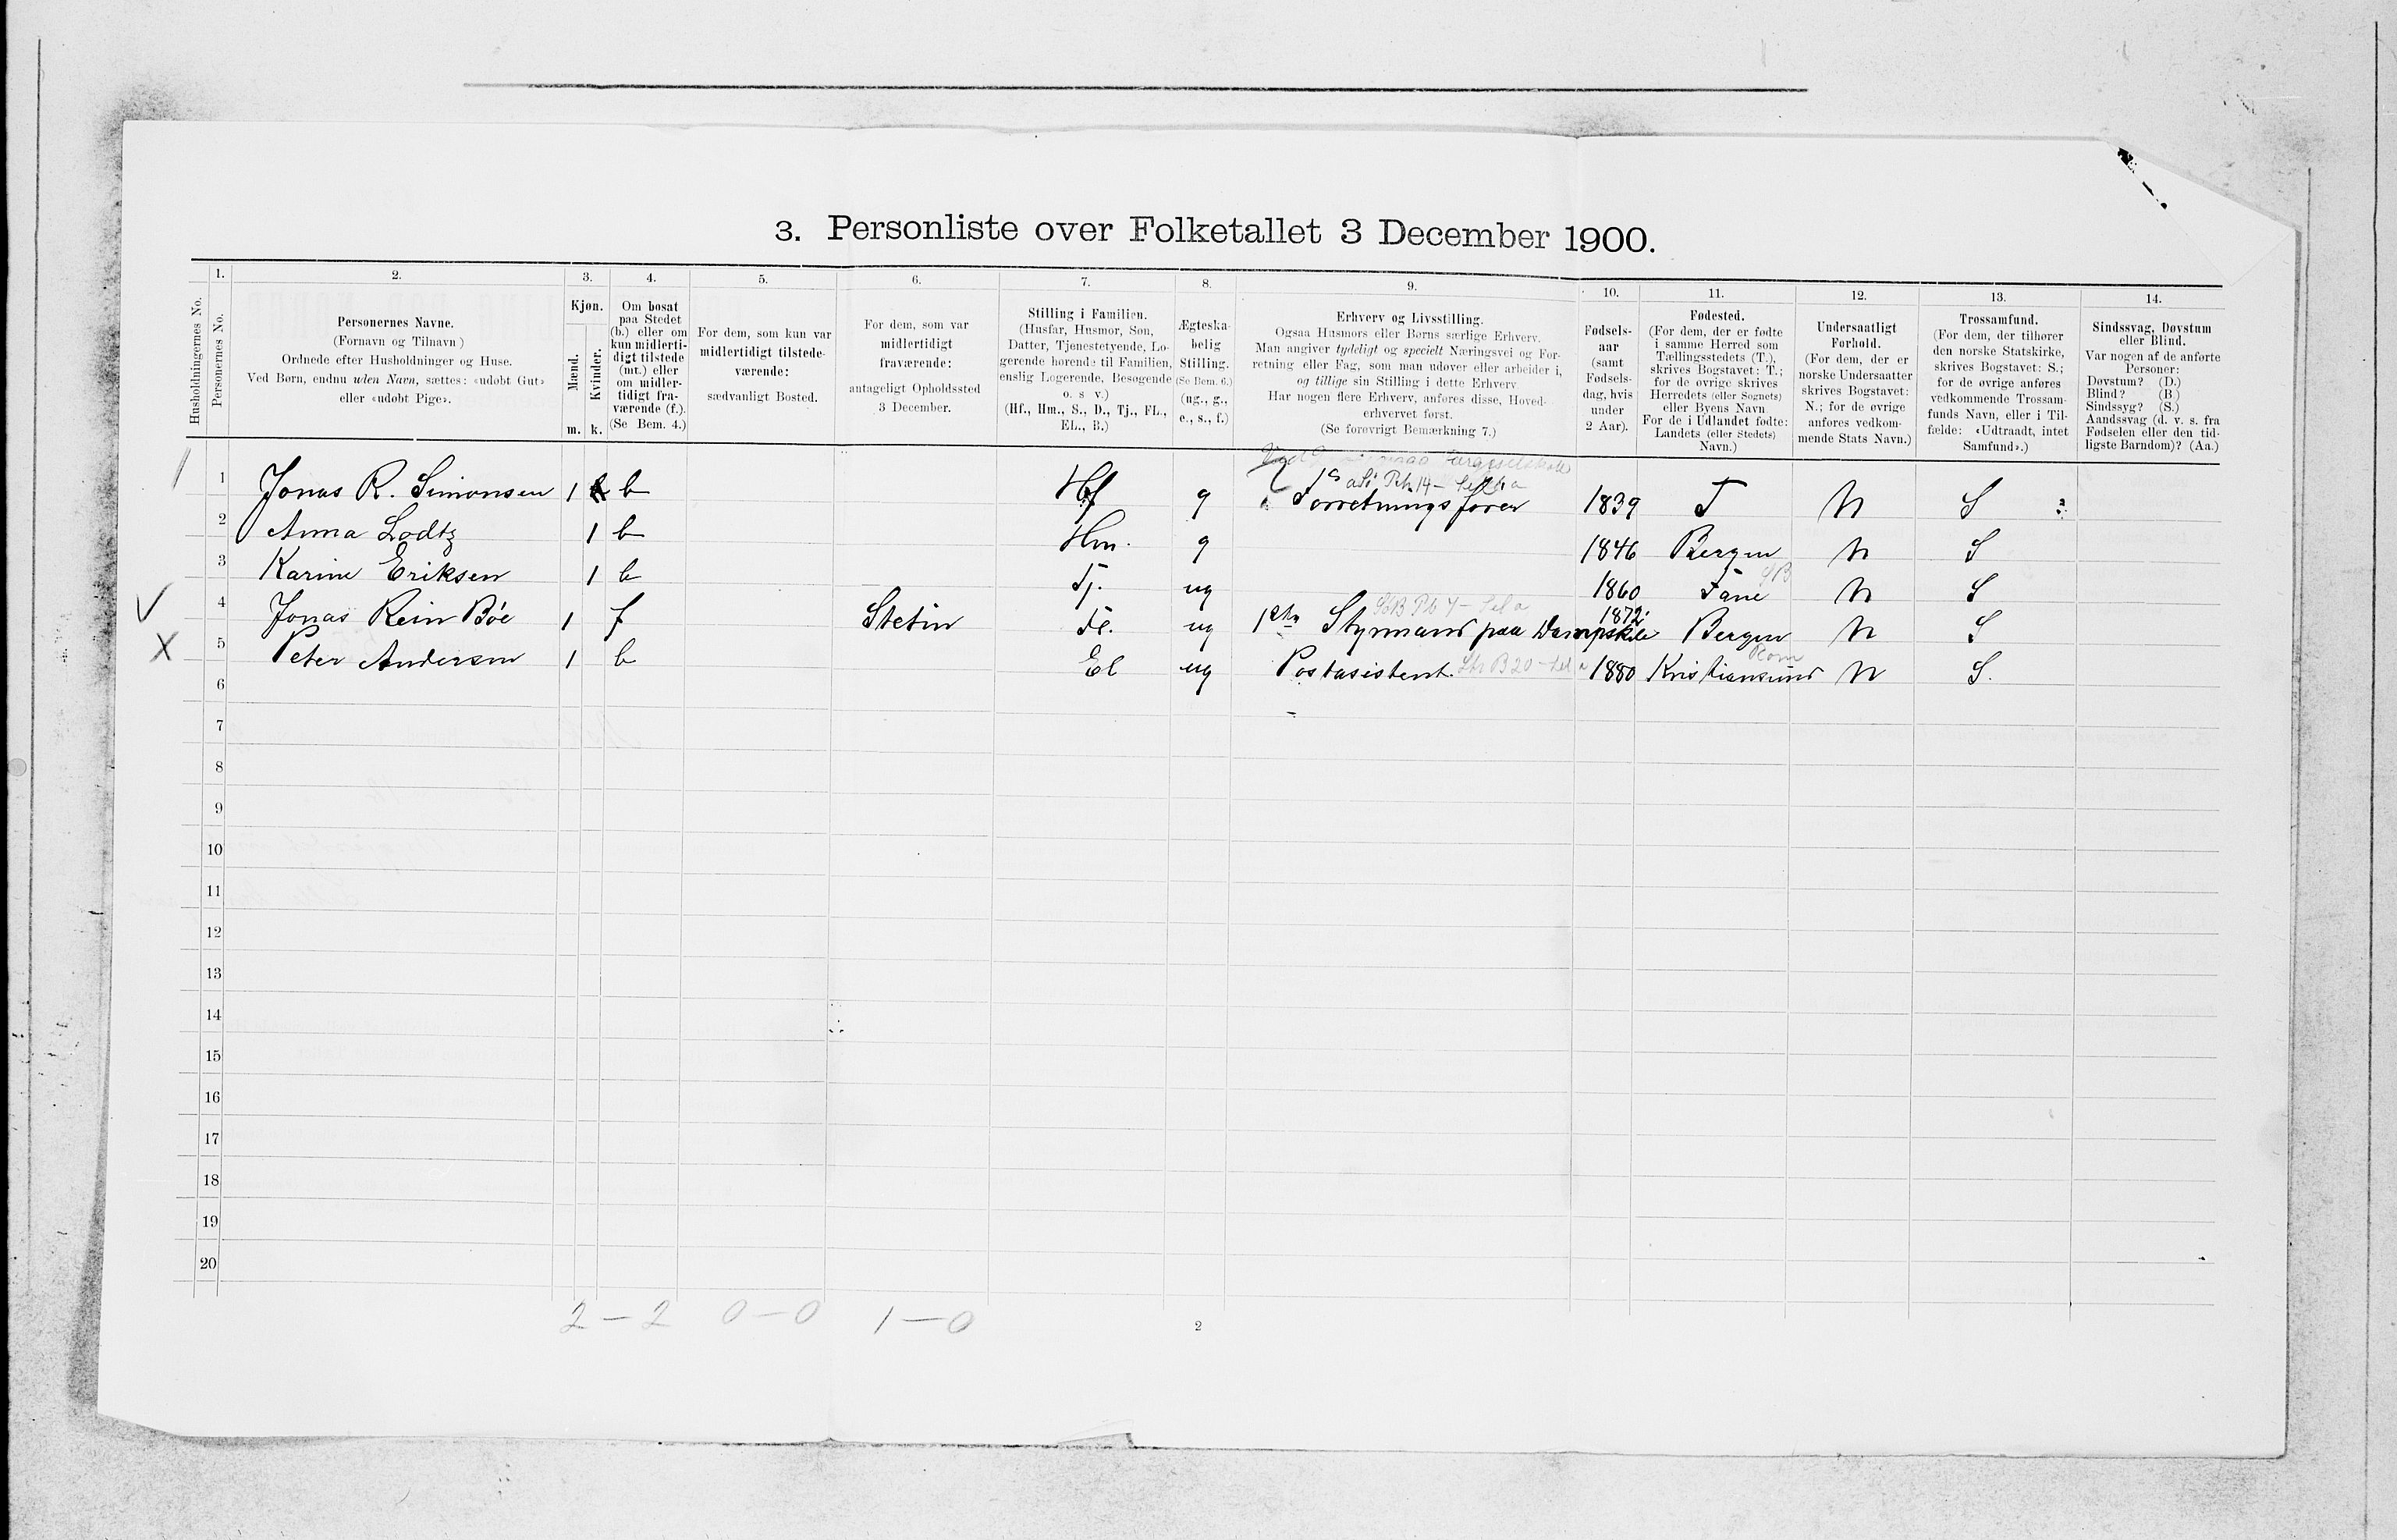 3. Personliste over Folketallet 3 December 1900.
Husholdningernes No.
1.
Personernes No.
2.
Personernes Navne.
(Fornavn og Tilnavn)
Ordnede efter Husholdninger og Huse.
Ved Børn, endnu uden Navn, sættes: «udøbt Gut»
eller «udøbt Pige».
3.
Kjøn.
Mænd.
Kvinder.
m. k.
4.
Om bosat
paa Stedet
(b.) eller om
kun midlerti-
digt tilstede
(mt.) eller
om midler-
tidigt fra-
værende (f.).
(Se Bem. 4.)
5.
For dem, som kun var
midlertidigt tilstede-
værende:
sædvanligt Bosted.
6.
For dem, som var
midlertidigt
fraværende:
antageligt Opholdssted
3 December.
7.
Stilling i Familien.
(Husfar, Husmor, Søn,
Datter, Tjenestetyende, Lo-
gerende hørende til Familien,
enslig Logerende, Besøgende
o. s v.)
(Hf., Hm., S., D., Tj., FL.,
EL., B.)
8.
Ægteska-
belig
Stilling.
(Se Bem. 6.)
(ug., g.,
e., s., f.)
9.
Erhverv og Livsstilling.
Ogsaa Husmors eller Børns særlige Erhverv.
Man angiver tydeligt og specielt Næringsvei og For-
retning eller Fag, som man udøver eller arbeider i,
og tillige sin Stilling i dette Erhverv
Har nogen flere Erhverv, anføres disse, Hoved-
erhvervet først.
(Se forøvrigt Bemærkning 7.)
10.
Fødsels-
aar
(samt
Fødsels-
dag, hvis
under
2 Aar).
11.
Fødested.
(For dem, der er fødte
i samme Herred som
Tællingsstedets (T.),
skrives Bogstavet: T.;
for de øvrige skrives
Herredets (eller Sognets)
eller Byens Navn
For de i Udlandet fødte:
Landets (eller Stedets)
Navn.)
12.
Undersaatligt
Forhold.
(For dem, der er
norske Undersaatter
skrives Bogstavet:
N.; for de øvrige
anføres vedkom-
mende Stats Navn.)
13.
Trossamfund.
(For dem, der tilhører
den norske Statskirke,
skrives Bogstavet: S.;
for de øvrige anføres
vedkommende Trossam-
funds Navn, eller i Til-
fælde: «Udtraadt, intet
Samfund».)
14.
Sindssvag, Døvstum
eller Blind.
Var nogen af de anførte
Personer:
Døvstum? (D.)
Blind? (B)
Sindssyg? (S.)
Aandssvag (d. v. s. fra
Fødselen eller den tid-
ligste Barndom)? (Aa.)
1 Jonas R. Simonsen 1 b Hf g Forretningsfører 1839 T N S
2 Anna Lodtz 1 b Hm. g 1846 Bergen N S
3 Karine Eriksen 1 b Tj. ug 1860 Fane N S
4 Jonas Rein Böe 1 f Stetin Fl. ug 1ste Styrmand paa Dampskib 1872 Bergen N S
5 Peter Andersen 1 b El ug Postasistent. 1880 Kristiansund N S.
6
7
8
9
10
11
12
13
14
15
16
17
18
19
20
2 — 2 0 — 0 1 — 0
2